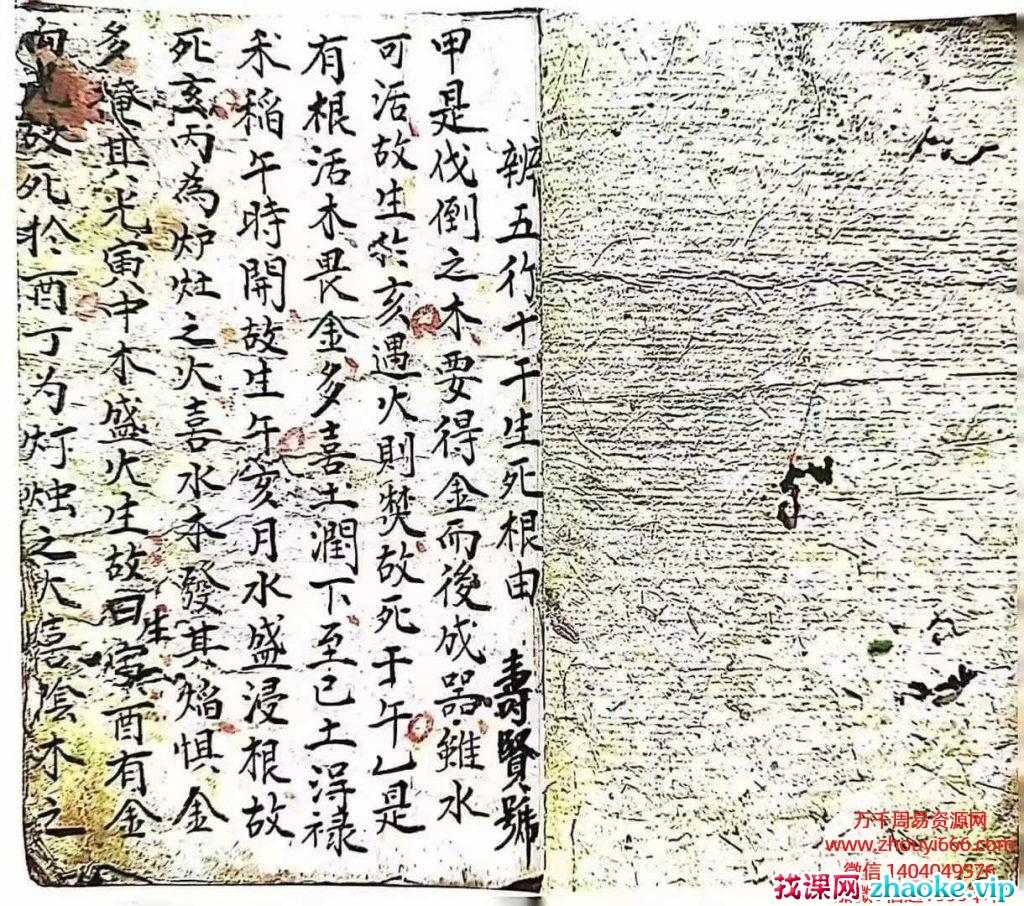 辨五行十干生死根由 壽賢號
甲是伐倒之木要得金而後成器雖水
可活故生於亥遇火則焚故死于午乙是
有根活木畏金多喜土潤下至己土得祿
禾稻午時開故生午亥月水盛浸根故
死亥丙為炉灶之火喜水木發其焰惧金
多掩其光寅中木盛火生故曰生寅酉有金
故死於酉丁为灯烛之火喜陰木之
万千周易资源网
www.zhouyi666.com
微信 1404049576
找课网zhaoke.vip